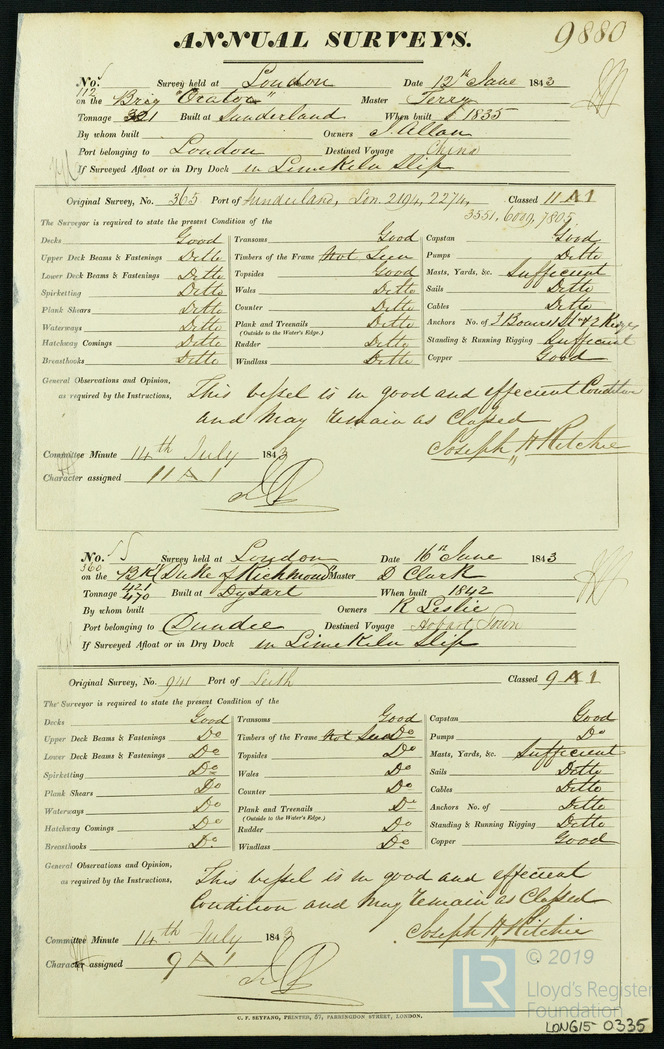 ANNUAL SURVEYS.
9880
No. Survey held at London Date 12th June 1843
112
on the Brig "Orator" Master Terry
Tonnage 321 Built at Sunderland When built 1835
By whom built Owners J. Allan
Port belonging to London Destined Voyage China
If Surveyed Afloat or in Dry Dock in Limekiln Slip
Original Survey, No. 365 Port of Sunderland, Lon. 2194, 2274, Classed 11 A 1
3551, 6009, 7805,
The Surveyor is required to state the present Condition of the
Decks Good Transoms Good Capstan Good
Upper Deck Beams & Fastenings Ditto Timbers of the Frame Not Seen Pumps Ditto
Lower Deck Beams & Fastenings Ditto Topsides Good Masts, Yards, &c. Sufficient
Spirketting Ditto Wales Ditto Sails Ditto
Plank Shears Ditto Counter Ditto Cables Ditto
Waterways Ditto Plank and Treenails Ditto Anchors No. of 3 Bowers 1 St & 2 Kedges
(Outside to the Water's Edge.)
Hatchway Comings Ditto Rudder Ditto Standing & Running Rigging Sufficient
Breasthooks Ditto Windlass Ditto Copper Good
General Observations and Opinion, This vessel is in good and effecient Condition
as required by the Instructions, and may remain as Classed
Joseph H Ritchie
Committee Minute 14th July 1843
Character assigned 11 A 1
No. Survey held at London Date 16th June 1843
360
on the Bk "Duke of Richmond" Master D Clark
Tonnage 421 Built at Dysart When built 1842
470
By whom built Owners R Leslie
Port belonging to Dundee Destined Voyage Hobart Town
If Surveyed Afloat or in Dry Dock in Limekiln Slip
Original Survey, No. 941 Port of Leith Classed 9 A 1
The Surveyor is required to state the present Condition of the
Decks Good Transoms Good Capstan Good
Upper Deck Beams & Fastenings Do Timbers of the Frame Not Seen Do Pumps Do
Lower Deck Beams & Fastenings Do Topsides Do Masts, Yards, &c. Sufficient
Spirketting Do Wales Do Sails Ditto
Plank Shears Do Counter Do Cables Ditto
Waterways Do Plank and Treenails Do Anchors No. of Ditto
(Outside to the Water's Edge.)
Hatchway Comings Do Rudder Do Standing & Running Rigging Ditto
Breasthooks Do Windlass Do Copper Good
General Observations and Opinion, This vessel is in good and effecient
as required by the Instructions, Condition and may remain as Classed
Joseph H Ritchie
Committee Minute 14th July 1843
Character assigned 9 A 1
C. F. SEYFANG, PRINTER, 57, FARRINGDON STREET, LONDON.
LR © 2019
Lloyd's Register
Foundation
LON615-0335